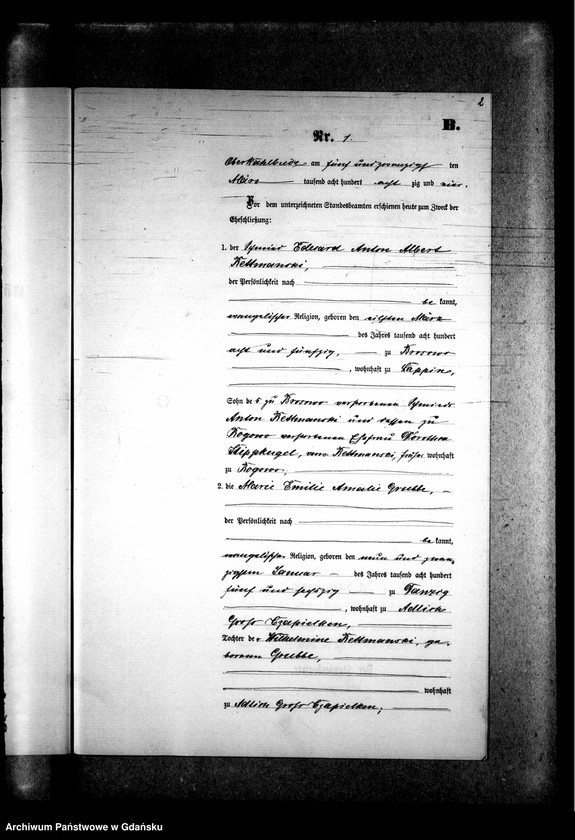 2
B.
Nr. 1.
Oberkahlbude am fünf und zwanzigst ten
März tausend acht hundert acht zig und vier.
Vor dem unterzeichneten Standesbeamten erschienen heute zum Zweck der
Eheschließung:
1. der Schmied Eduard Anton Albert
Kettmanski,
der Persönlichkeit nach
be kannt,
evangelischer Religion, geboren den elften März
des Jahres tausend acht hundert
acht und fünfzig, zu Kossowo
, wohnhaft zu Lappin,
Sohn des zu Kossowo verstorbenen Schmieds
Anton Kettmanski und dessen zu
Rogowo verstorbenen Ehefrau Dorothea
, verw. Kettmanski, früher wohnhaft
zu Rogowo,
2. die Marie Emilie Amalie Grubbe,
der Persönlichkeit nach
be kannt,
evangelischer Religion, geboren den neun und zwan¬
zigsten Januar des Jahres tausend acht hundert
fünf und sechszig zu Danzig
, wohnhaft zu Adlich
Groß Czapielken,
Tochter der Wilhelmine Kettmanski, ge¬
borenen Grubbe,
wohnhaft
zu Adlich Groß Czapielken,
Archiwum Państwowe w Gdańsku